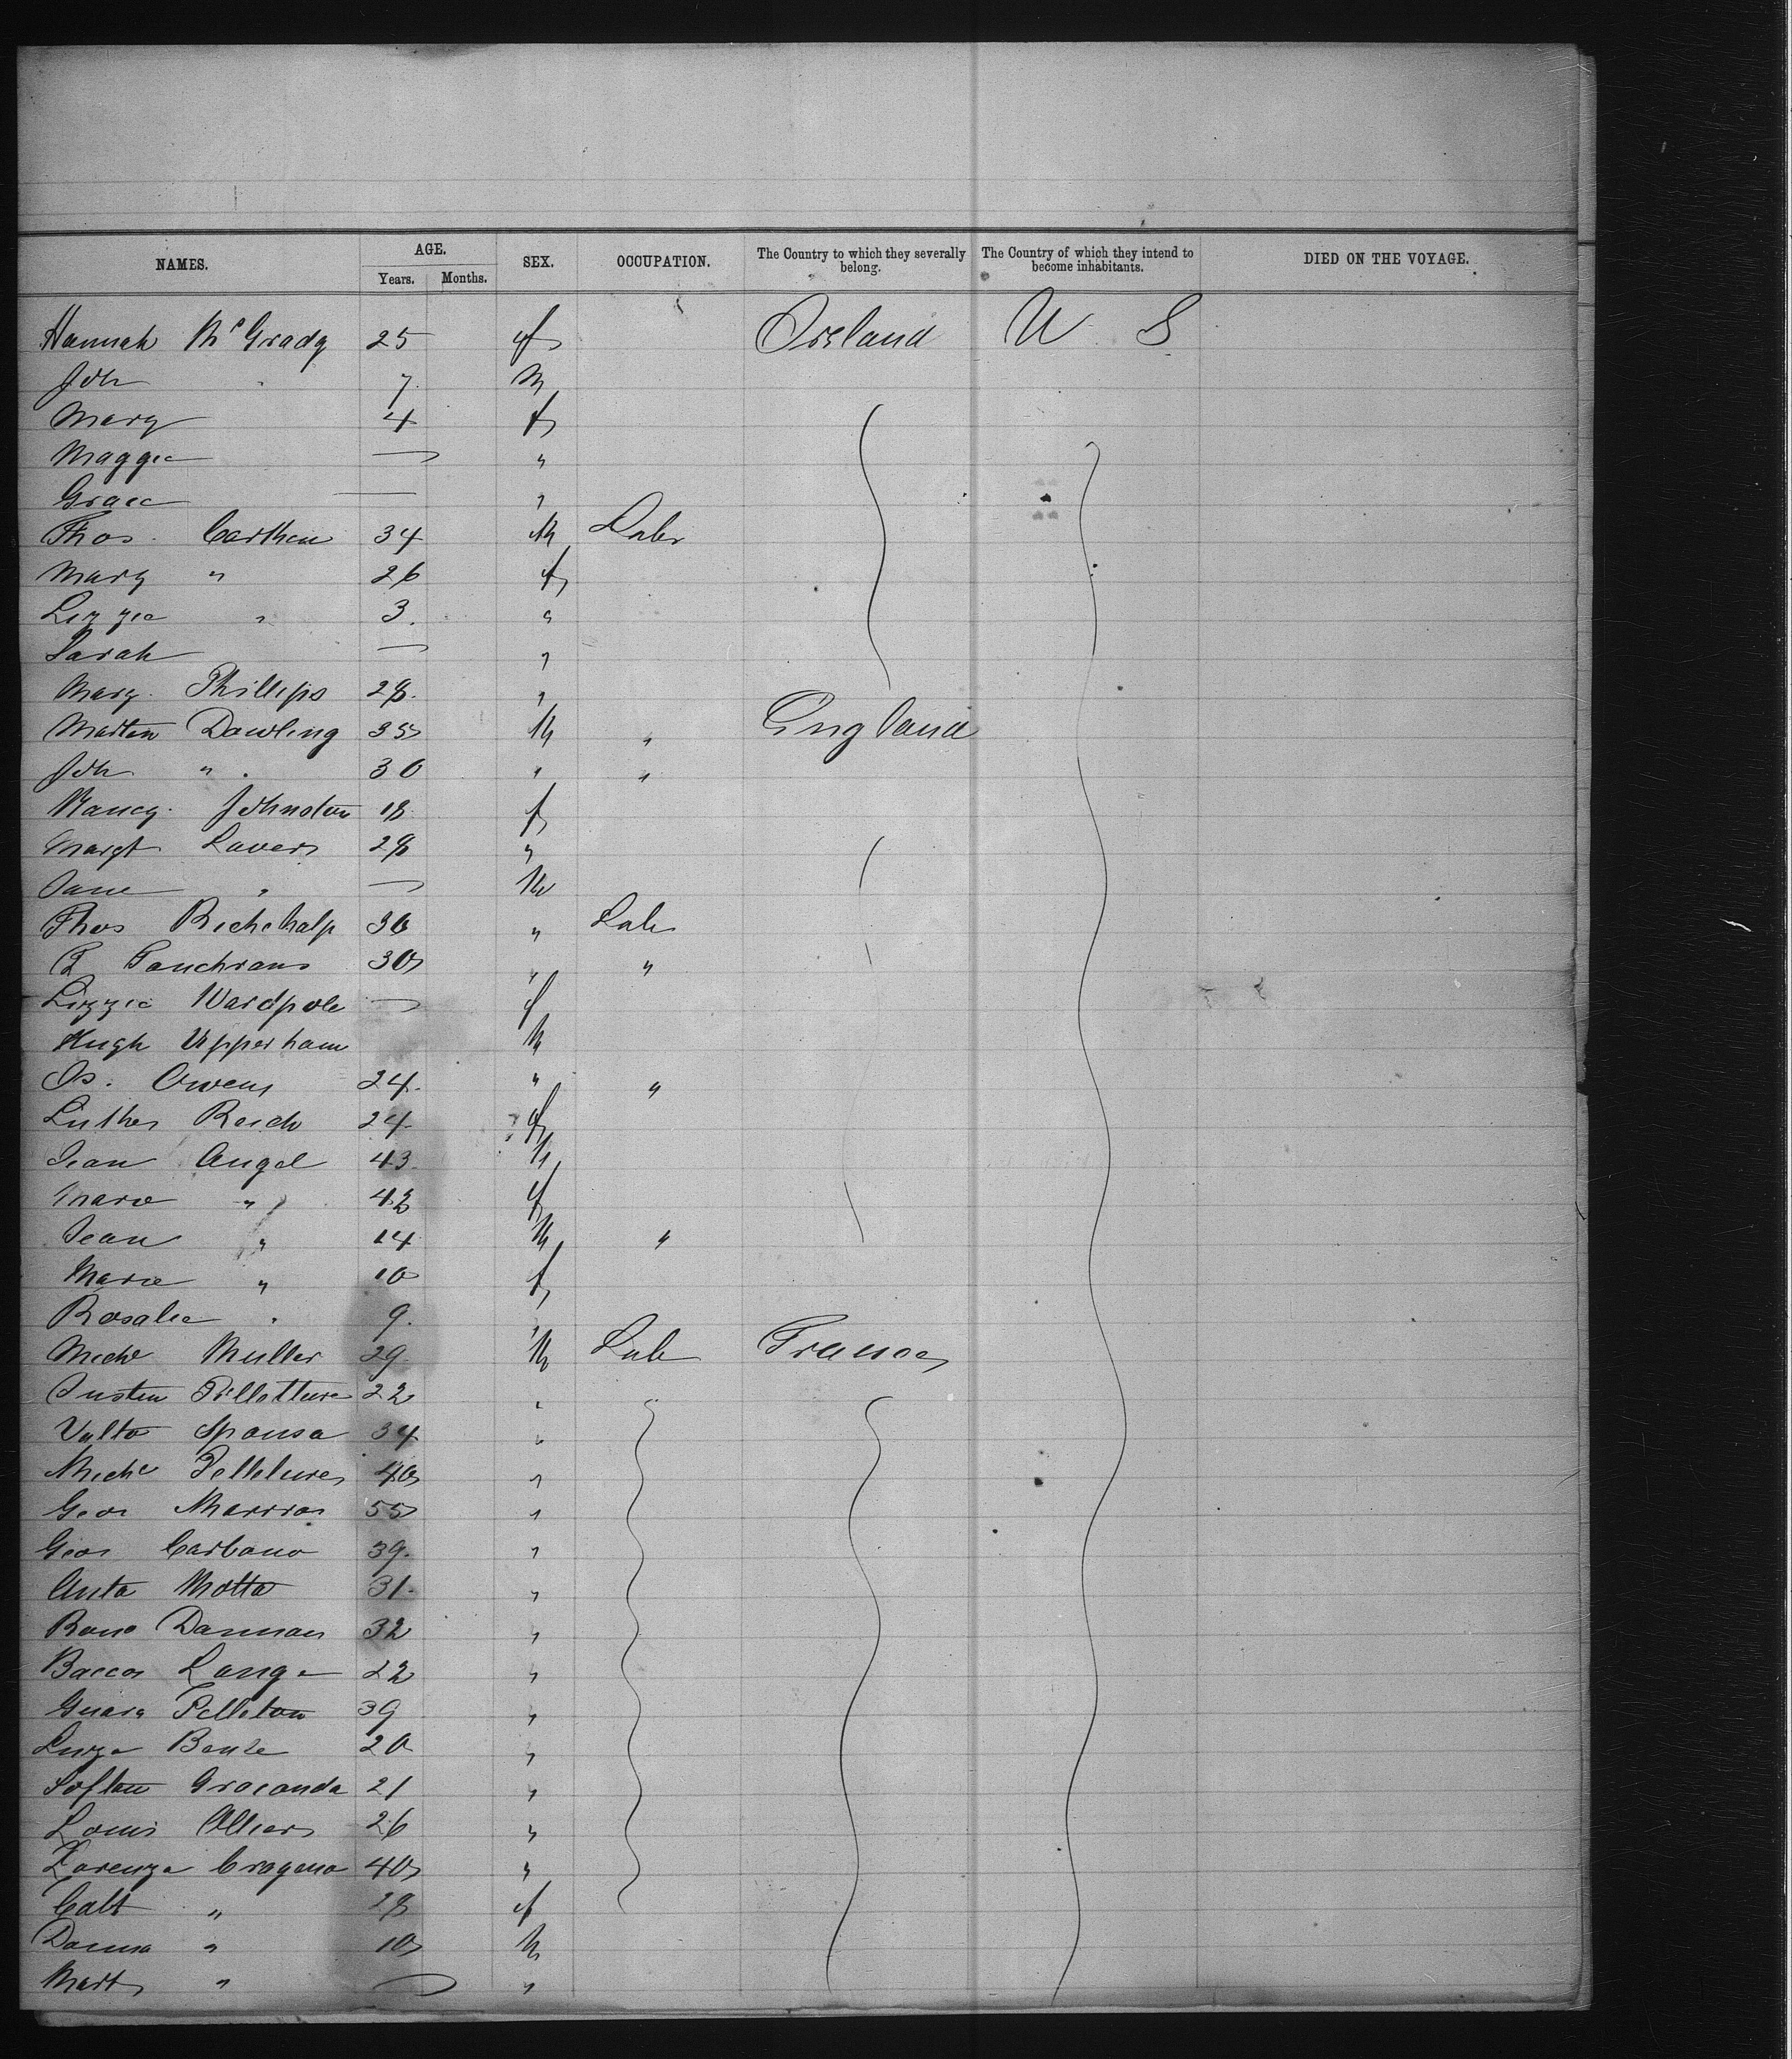 NAMES. AGE. SEX. OCCUPATION. The Country to which they severally belong. The Country of which they intend to become inhabitants. DIED ON THE VOYAGE.
Years. Months.
Hannah McGrady 25 f Ireland U S
Joh " 7 M
Mary 4 f
Maggie — "
Grace — "
Thos. Carthen 34 M Labr
Mary " 26 f
Lizzie " 3. "
Sarah — "
Mary. Phillips 28. "
Marten Dowling 35 M " England
Joh " 30 " "
Nancy. Johnston 18 f
Margt Lavers 28 "
Jane " — M
Thos Richehalp 30 " Lab
30 " "
Lizzie Wardpole — f
Hugh Upperham M
Js. Owens 24. " "
Luther Reich 24 f
Jean Angel 43. M
Marie " 42 f
Jean " 14 M "
Marie " 10 f
Rosalie " 9. "
Miche Muller 29. M Lab France
Justin 22 "
Valto Sponsa 34 "
Miche 40 "
Geor 55 "
Geor Carbano 39. "
Anta Motta 31. "
Dannan 32 "
Baccos Lange 22 "
Pelleton 39 "
20 "
Graconda 21 "
Louis Olliers 26 "
Lorenza Cragena 40 "
Calt " 28 f
Donna " 10 M
Mart " — "